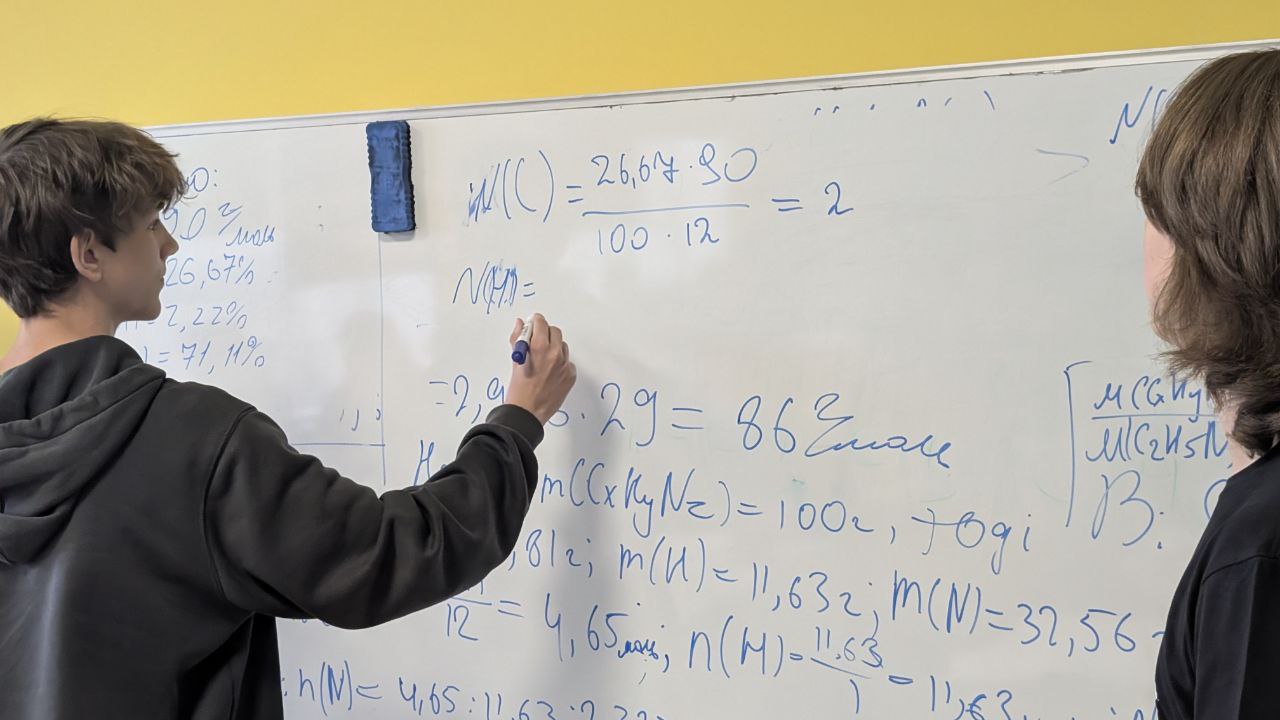 90 г/моль
26,67%
= 2,22%
) = 71,11%
N(C) = 26,67·90 / 100·12 = 2
N(H) =
=2,9 · 29 = 86 г/моль
m(CxHyNz) = 100г, тоді
,81г; m(H) = 11,63г; m(N) = 32,56
12 = 4,65 моль; n(H) = 11,63 / 1 = 11,63
: n(N) = 4,65 : 11,63 : 2,32
M(CxHyN
M(C2H5N
В: